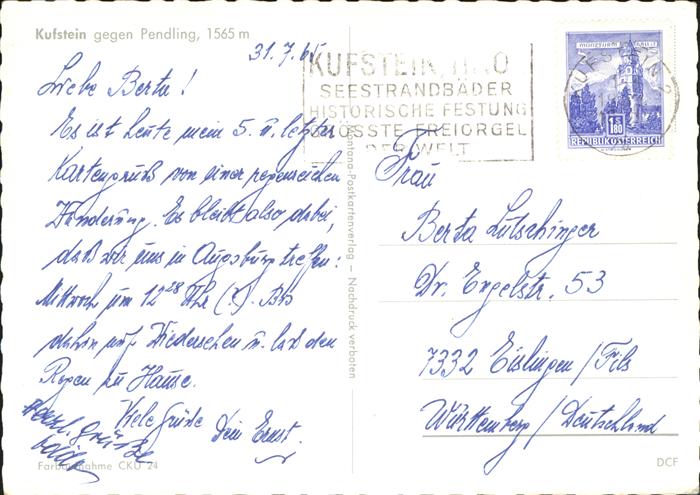 Kufstein gegen Pendling, 1565 m
31.7.65
Liebe Berta!
Es ist heute mein 5. u. letzter
Kartengruß von einer regenreichen
Wanderung. Es bleibt also dabei,
daß wir uns in Augsburg treffen:
Mittwoch um 12 28 Uhr (?). Bis
dahin auf Wiedersehen u. laß den
Regen zu Hause.
Viele Grüße
Dein Ernst.
Herzl. Grüße
Farbaufnahme CKU 24
Montana-Postkartenverlag — Nachdruck verboten
KUFSTEIN, TIROL
SEESTRANDBÄDER
HISTORISCHE FESTUNG
GRÖSSTE FREIORGEL
DER WELT
KUFSTEIN 2
MÜNZTURM HALL I.T.
S 1.80
REPUBLIK ÖSTERREICH
Frau
Berta Lutschinger
Dr. Engelstr. 53
7332 Eislingen/Fils
Württemberg/Deutschland
DCF